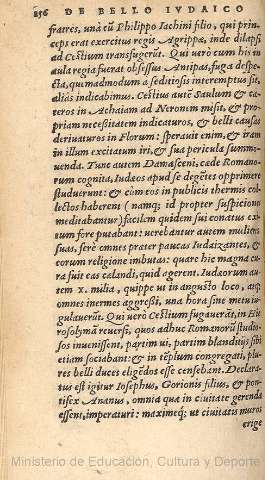 856 DE BELLO IVDAICO
fratres, unà cũ Philippo Iachini filio, qui prin-
ceps erat exercitus regis Agrippæ, inde dilapsi
ad Cestium transfugerũt. Qui verò cum his in
aula regia fuerat obsessus Antipas, fuga despe-
cta, qui admodum a seditiosis interemptus sit,
aliâs indicabimus. Cestius autẽ Saulum & cæ-
teros in Achaiam ad Neronem misit, & pro-
priam necessitatem indicaturos, & belli causas
deriuaturos in Florum: sperauit enim, & iram
in illum excitatum iri, & sua pericula summi-
uenda. Tunc autem Damasceni, cæde Romano-
rum cognita, Iudæos apud se degẽtes opprimere
studuerunt: & cum eos in publicis thermis col-
lectos haberent (namq; id propter suspicionẽ
meditabantur) facilem quidem sui conatus exi-
tum fore putabant: verebantur autem mulieres
suas, ferè omnes præter paucas Iudaizantes, &
eorum religione imbutas: quare his magna cu-
ra fuit eas calandi, quid agerent. Iudæorum au-
tem x. milia, quippe ut in angusto loco, atq;
omnes inermes aggressi, una hora sine metu iu-
gulauerũt. Qui verò Cestium fugauerãt, in Hie
rosolymã reuersi, quos adhuc Romanorũ studio-
sos inuenissent, partim ui, partim blanditijs sibi
etiam sociabant: & in tẽplum congregati, plu-
res belli duces eligẽdos esse censebant. Declara-
tus est igitur Iosephus, Gorionis filius, & pon-
tifex Ananus, omnia quæ in ciuitate gerenda
essent, imperaturi: maximeq; ut ciuitatis muros
erige
Ministerio de Educación, Cultura y Deporte